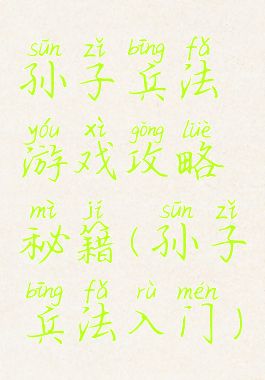 sūn zǐ bīng fǎ
孙子兵法
yóu xì gōng lüè
游戏攻略
mì jí sūn zǐ
秘籍(孙子
bīng fǎ rù mén
兵法入门)